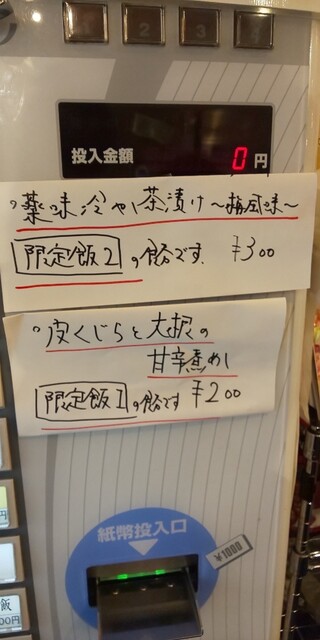 1
2
3
4
投入金額 0円
薬味冷やし茶漬け〜梅風味〜
限定飯2の食券です. ¥300
皮くじらと大根の
甘辛煮めし
限定飯1の食券です ¥200
紙幣投入口
1000円
円
飯
00円